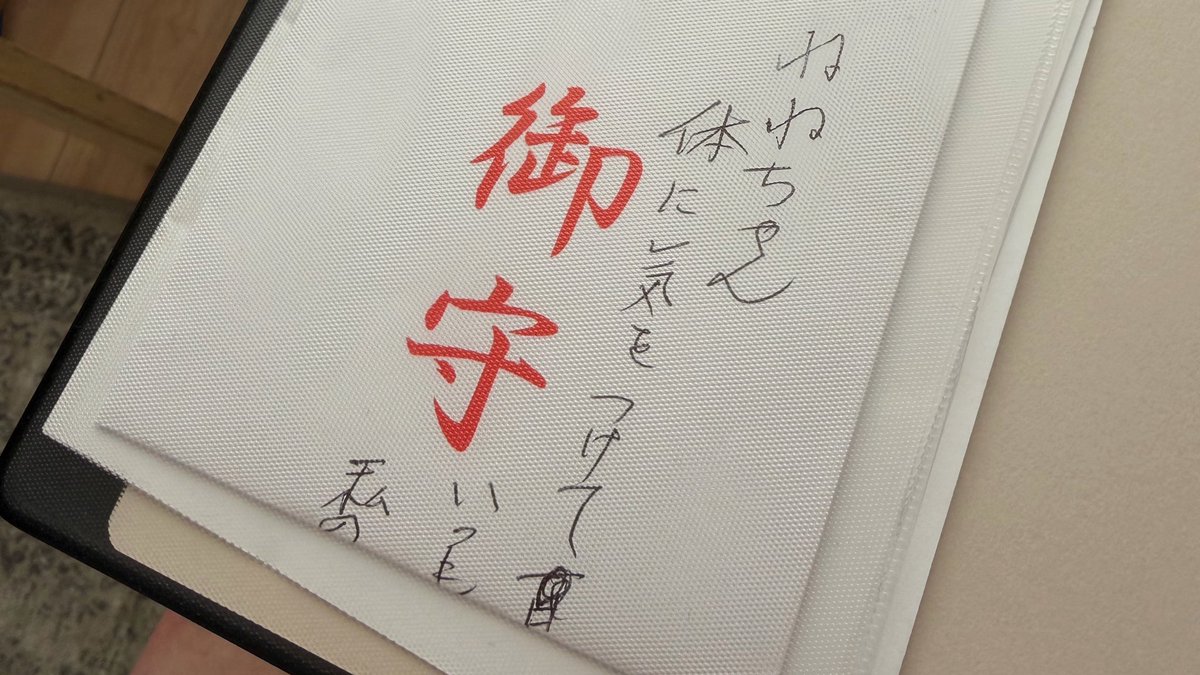 ねねちゃん
体に気をつけて
御守
いつも
私の